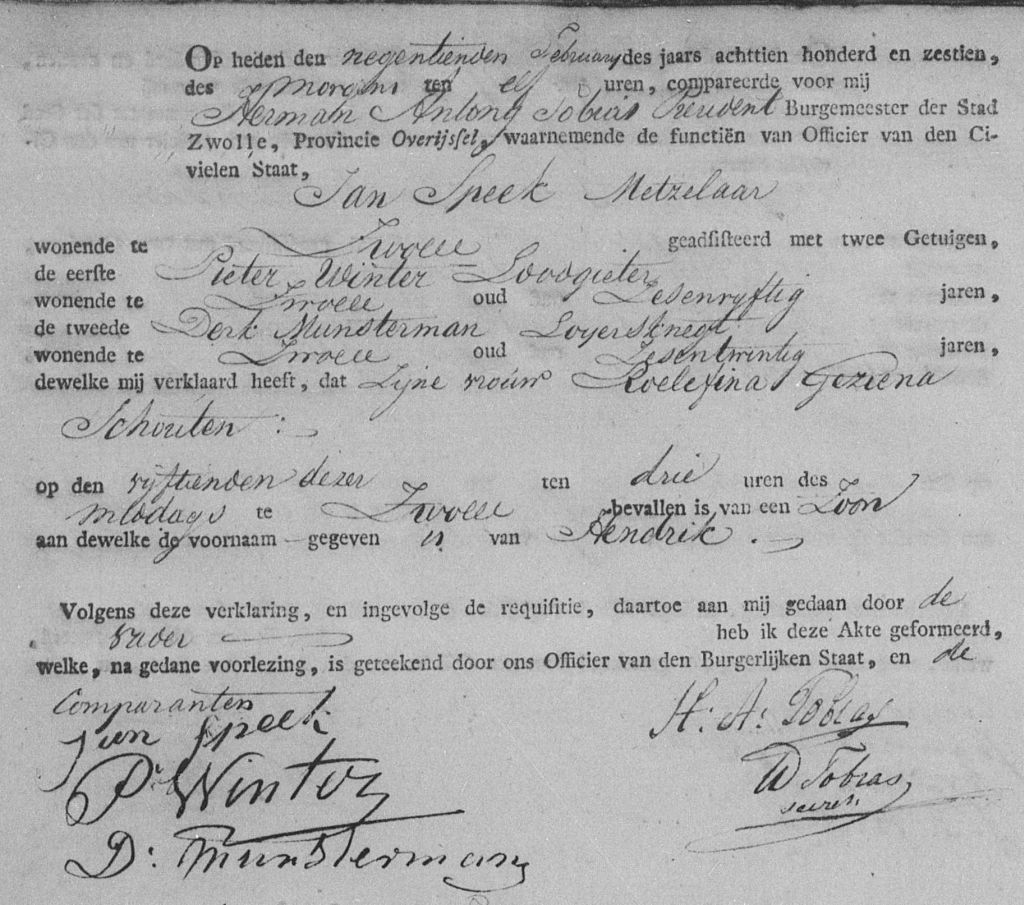 Op heden den negentienden February des jaars achttien honderd en zestien,
des Morgens ten elf uren, compareerde voor mij
Herman Antony Tobias President Burgemeester der Stad
Zwolle, Provincie Overijssel, waarnemende de functiën van Officier van den Ci-
vielen Staat,
Jan Speek Metzelaar
wonende te Zwolle geadsisteerd met twee Getuigen,
de eerste Pieter Winter Loodgieter
wonende te Zwolle oud Zesenvyftig jaren,
de tweede Derk Munsterman Loyersknegt
wonende te Zwolle oud Zesentwintig jaren,
dewelke mij verklaard heeft, dat Zyne vrouw Roelefina Geziena
Schouten :
op den vyftienden dezer ten drie uren des
middags te Zwolle bevallen is van een Zoon
aan dewelke de voornaam gegeven is van Hendrik .
Volgens deze verklaring, en ingevolge de requisitie, daartoe aan mij gedaan door de
vader heb ik deze Akte geformeerd,
welke, na gedane voorlezing, is geteekend door ons Officier van den Burgerlijken Staat, en de
Comparanten
Jan Speek
H: A: Tobias
P. Winter
W Tobias
secret.
D: Munsterman